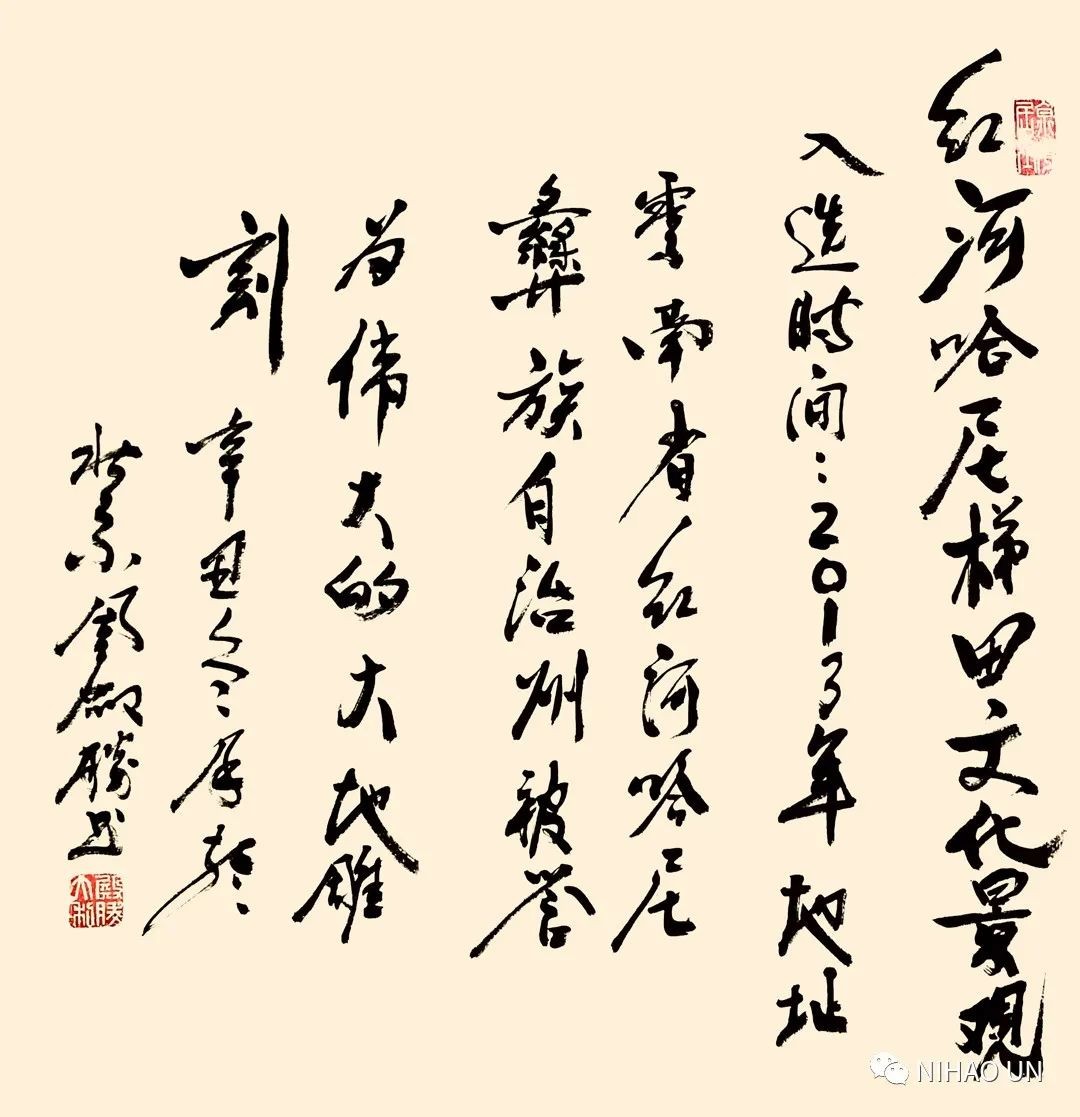 红河哈尼梯田文化景观
入选时间：2013年 地址
雲南省红河哈尼
彝族自治州被誉
为伟大的大地雕
刻 辛丑冬
勝書
NIHAO UN